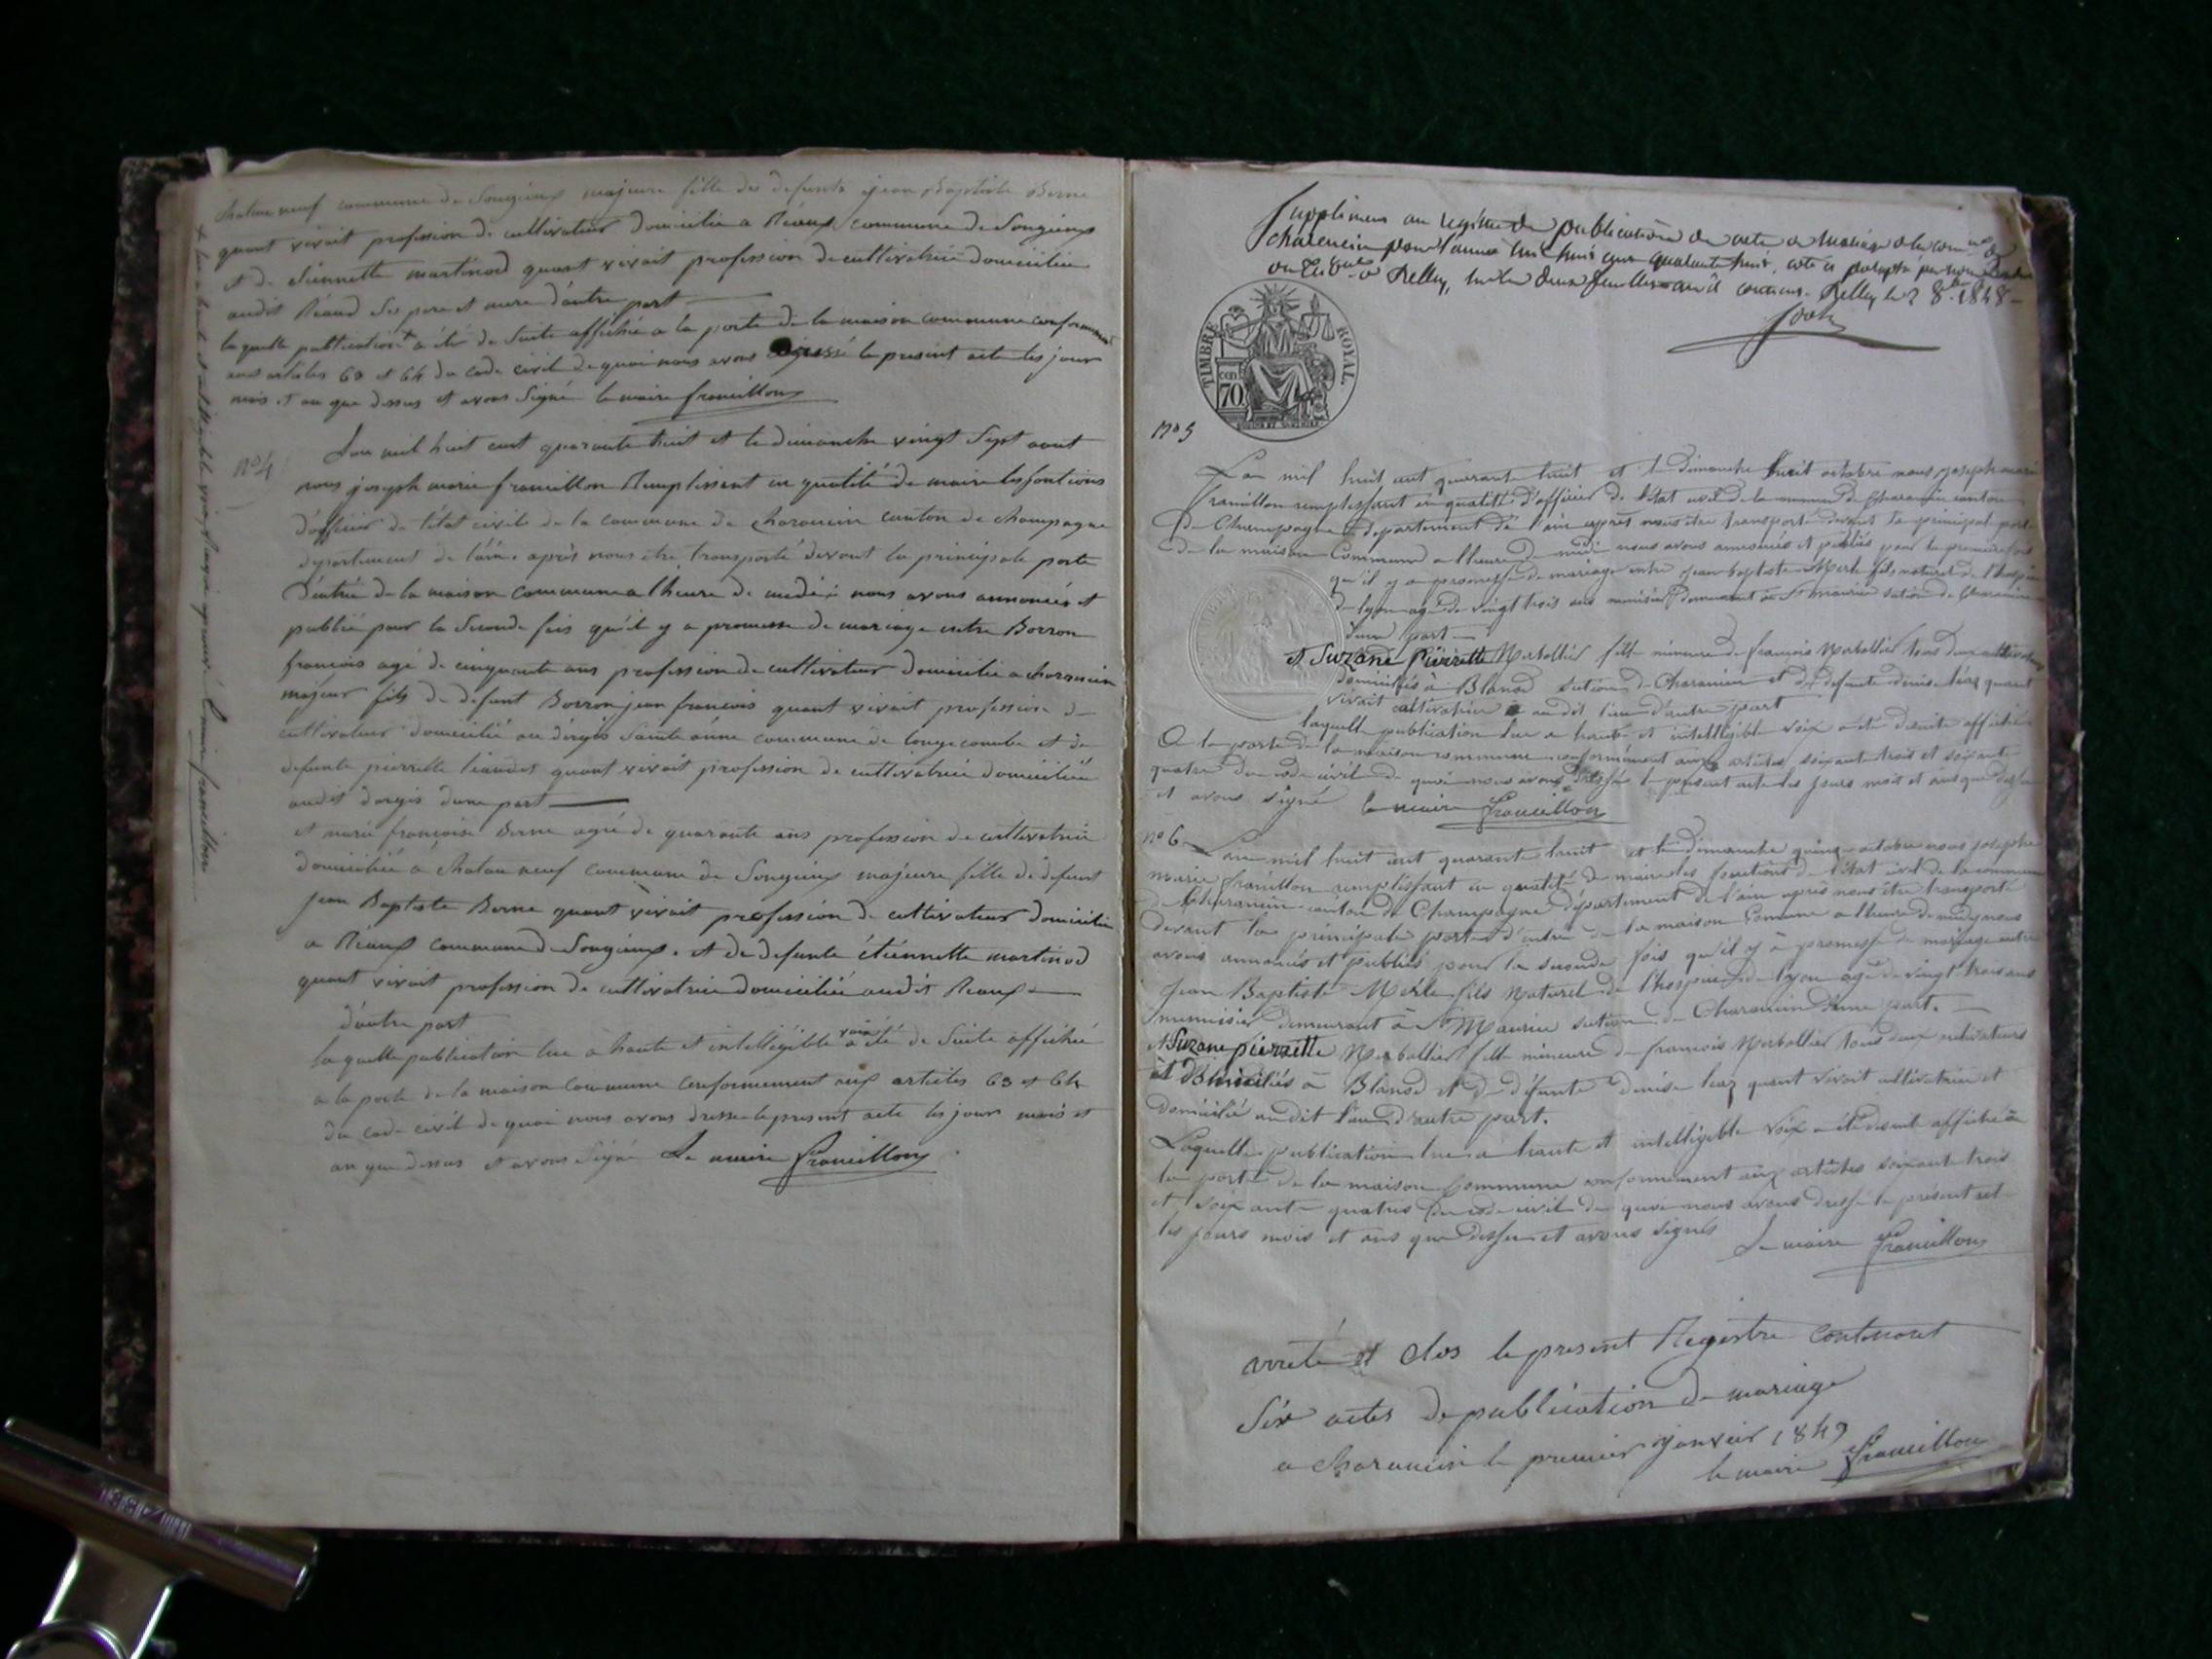 Chateauneuf commune de Songieux majeure fille des defunts jean Baptiste Berne
quant vivait profession de cultivateur domicilié a Réaux commune de Songieux
et de étiennette martinod quant vivait profession de cultivatrice domiciliée
audit Réaud ses pere et mere d'autre part
laquelle publication + a été de suite affichée a la porte de la maison commune conformement
aux articles 63 et 64 du code civil de quoi nous avons dressé le present acte les jour
mois et an que dessus et avons signé le maire francillon
+ lue a haute et intelligible voix
approuvé le maire francillon
n° 4
L'an mil huit cent quarante huit et le dimanche vingt sept aout
nous joseph marie francillon Remplissant en qualité de maire les fontions
d'officier de l'état civile de la commune de charancin canton de champagne
departement de l'ain. après nous etre transporté devant la principale porte
d'entrée de la maison commune a l'heure de midi. nous avons annoncés et
publié pour la seconde fois qu'il y a promesse de mariage entre Borron
francois agé de cinquante ans profession de cultivateur domicilié a charancin
majeur fils de defunt Borron jean francois quant vivait profession de
cultivateur domicilié au dergis Sainte anne commune de longecombe et de
defunte pierrette liandet quant vivait profession de cultivatrice domiciliée
audit dergis d'une part
et marie françoise Berne agée de quarante ans profession de cultivatrice
domiciliée a chateau neuf commune de Songieux majeure fille de defunt
jean Baptiste Berne quant vivait profession de cultivateur domicilié
a Réaux commune de Songieux. et de defunte étiennette martinod
quant vivait profession de cultivatrice domiciliée audit Reaux
d'autre part
laquelle publication lue a haute et intelligible voix a été de suite affichée
a la porte de la maison commune conformement aux articles 63 et 64
du code civil de quoi nous avons dressé le present acte les jour mois et
an que dessus et avons signé Le maire francillon
Supplément au registre de publications des actes de mariage de la commune de
charancin pour l'année mil huit cent quarante huit, coté et paraphé par nous
Belley, deux feuillets Belley le 2 8bre 1848
TIMBRE ROYAL
70 cen
N° 5
L'an mil huit cent quarante huit et le dimanche huit octobre nous joseph marie
francillon remplissant en qualité d'officier de l'état civil de la commune de Charancin canton
de Champagne departement de l'ain après nous être transporté devant la principal porte
de la maison Commune a l'heure de midi nous avons annoncés et publiés pour la premiere fois
qu'il y a promesse de mariage entre Jean baptiste Merle fils naturel de l'hospice
de lyon agé de vingt trois ans menuisier demeurant à St maurice section de Charancin
d'une part
et Suzane Pierrette Marbollier fille mineure de francois Marbollier tous deux cultivateurs
domiciliés à Blanod section de Charancin et de defunte denise leaz quant
vivait cultivatrice au dit lieu d'autre part
laquelle publication lue a haute et intelligible voix a été de suite affichée
a la porte de la maison commune conformément aux articles soixante trois et soixante
quatre du code civil de quoi nous avons dressé le present acte les jours mois et ans que dessus
et avons signé le maire francillon
n° 6
L'an mil huit cent quarante huit et le dimanche quinze octobre nous joseph
marie francillon remplissant en qualité de maire les fonctions de l'état civil de la commune
de Charancin canton de Champagne departement de l'ain après nous être transporté
devant la principale porte d'entrée de la maison Comune a l'heure de midy nous
avons annoncés et publiés pour la seconde fois qu'il y à promesse de mariage entre
Jean Baptiste Merle fils naturel de l'hospice de lyon agé de vingt trois ans
menuisier demeurant à St Maurice section de Charancin d'une part.
et Suzane pierrette Marbollier fille mineure de francois Marbollier tous deux cultivateurs
et domiciliés à Blanod et de défunte denise leaz quant vivait cultivatrice et
domicilié au dit lieu d'autre part.
Laquelle publication lue a haute et intelligible voix a été de suite affichée à
la porte de la maison Commune conformement aux articles soixante trois
et soixante quatres du code civil de quoi nous avons dressé le présent acte
les jours mois et ans que dessus et avons signés Le maire francillon
arreté et clos le present Registre contenant
six actes de publication de mariage
a charancin le premier janvier 1849
le maire francillon